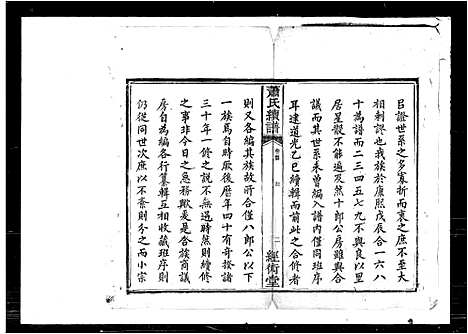 引證世系之多寡折而衷之庶不至大
相剌謬也我族於康熙戊辰合一六八
十為譜而二三四五七九不與良以里
居星散不能遍及然十郎公房雖與合
議而其世系未曾編入譜內僅同班序
耳逮道光乙巳續輯而前此之合修者
蕭氏續譜
卷首
二
經術堂
則又各編其族故所合僅八郎公以下
一族焉自時厥後歷年四十有奇揆諸
三十年一修之說不逾時然則續修
之事非今日之急務歟爰是各族商議
房自為編各行纂輯互相收藏班序則
仍從同世次庶以不紊則分之而小宗